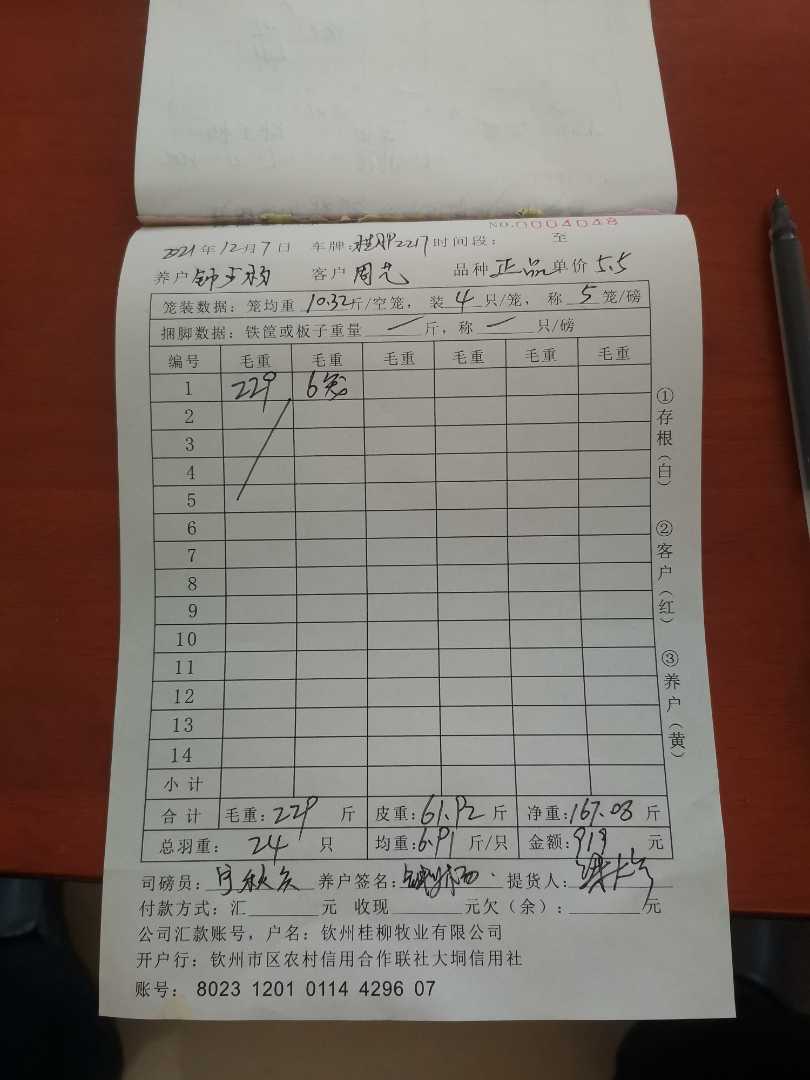 NO.0004048
2021年12月7日 车牌:桂 2217时间段: 至
养户 钟 杨 客户 周艺 品种 正品 单价 5.5
笼装数据: 笼均重 10.32斤/空笼, 装 4 只/笼, 称 5 笼/磅
捆脚数据: 铁筐或板子重量 — 斤, 称 — 只/磅
编号 毛重 毛重 毛重 毛重 毛重 毛重
1 229 6笼
2
3
4
5
6
7
8
9
10
11
12
13
14
小计
合计 毛重: 229 斤 皮重: 61.92 斤 净重: 167.08 斤
总羽重: 24 只 均重: 6.91 斤/只 金额: 919 元
司磅员: 养户签名: 提货人:
付款方式: 汇 元 收现 元欠(余): 元
公司汇款账号, 户名: 钦州桂柳牧业有限公司
开户行: 钦州市区农村信用合作联社大垌信用社
账号: 8023 1201 0114 4296 07
①存根(白)
②客户(红)
③养户(黄)